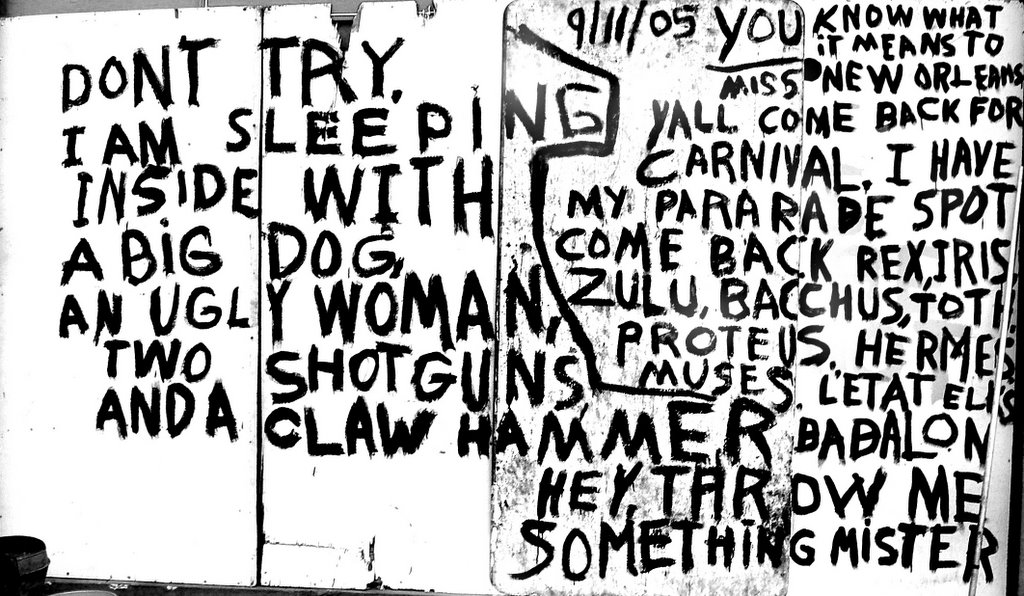 DONT TRY.
I AM SLEEPING
INSIDE WITH
A BIG DOG,
AN UGLY WOMAN,
TWO SHOTGUNS
AND A CLAW HAMMER
9/11/05 YOU KNOW WHAT
IT MEANS TO
MISS NEW ORLEANS
YALL COME BACK FOR
CARNIVAL. I HAVE
MY PARARADE SPOT
COME BACK REX, IRIS,
ZULU, BACCHUS, TOTH,
PROTEUS. HERMES
MUSES. L'ETAT ELVIS
BABALON
HEY, THROW ME
SOMETHING MISTER